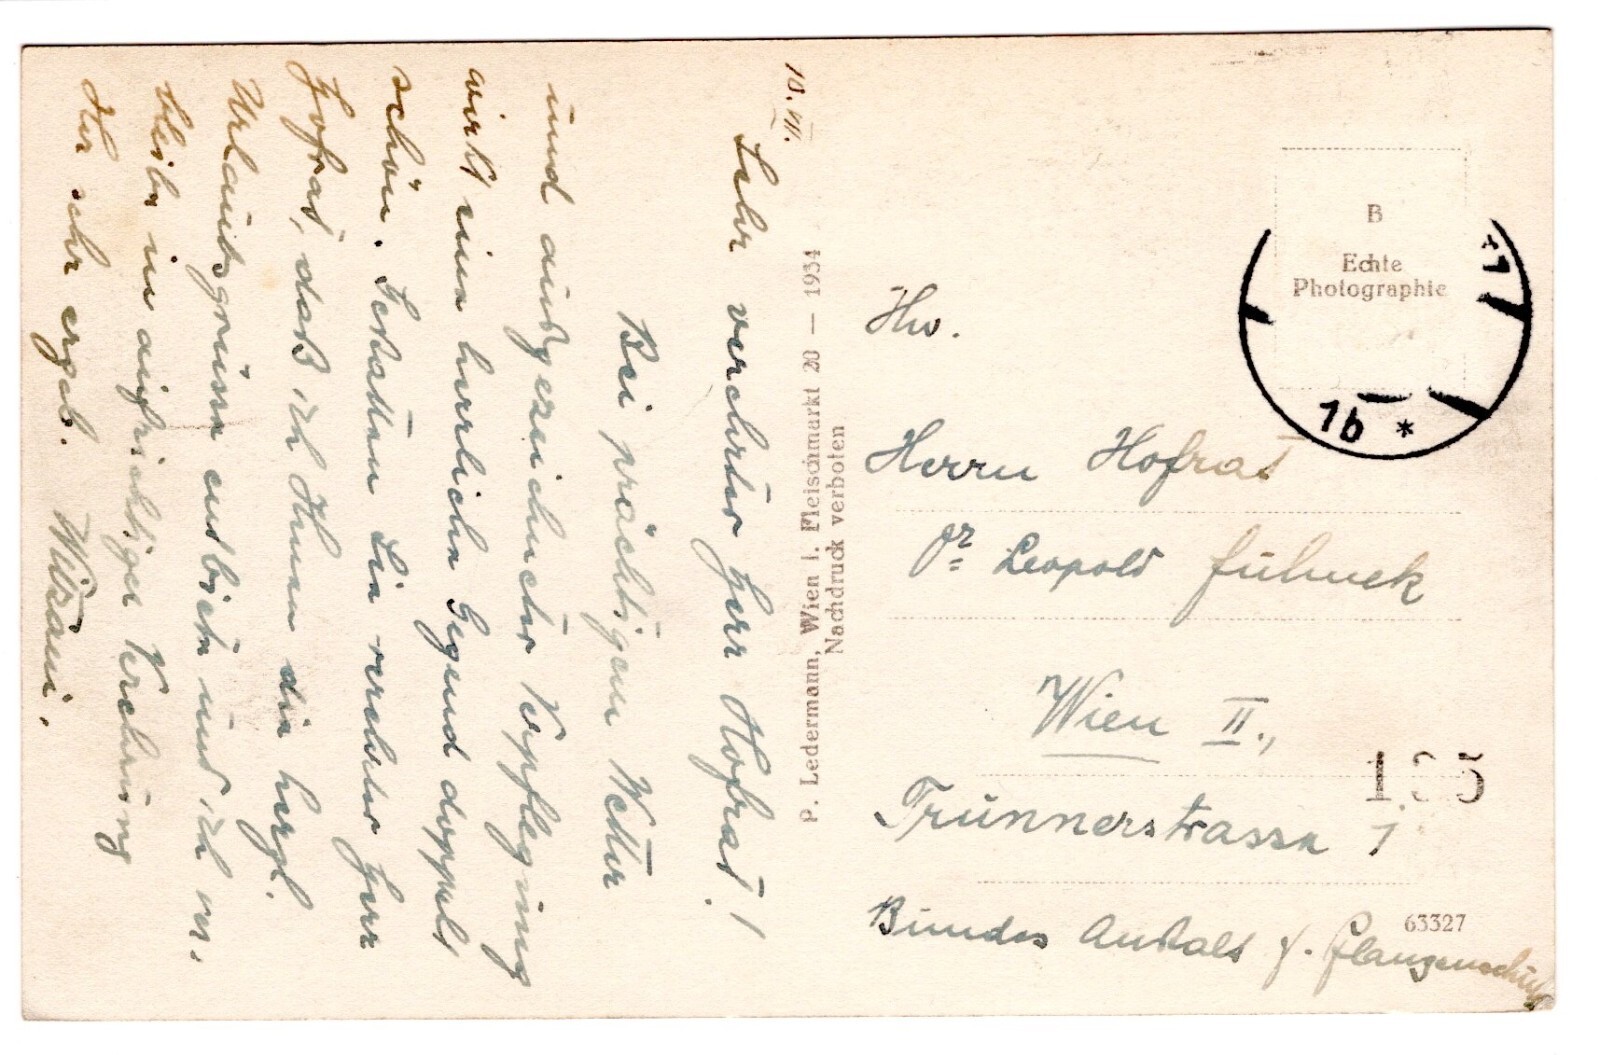 10. VII.
Sehr verehrter Herr Hofrat!
Bei prächtigem Wetter
und ausgezeichneter Verpflegung
wirkt eine herrliche Gegend doppelt
schön. Gestatten Sie verehrter Herr
Hofrat, daß ich Ihnen die herzl.
Urlaubsgrüsse entbiete und ich ver-
bleibe in aufrichtiger Verehrung
Ihr sehr ergeb.
P. Ledermann, Wien I. Fleischmarkt 20 — 1934
Nachdruck verboten
B
Echte
Photographie
1b *
Hw.
Herrn Hofrat
Dr Leopold Fulmek
Wien II.,
Trunnerstrasse 1
135
Bundes Anstalt f. Pflanzenschutz
63327